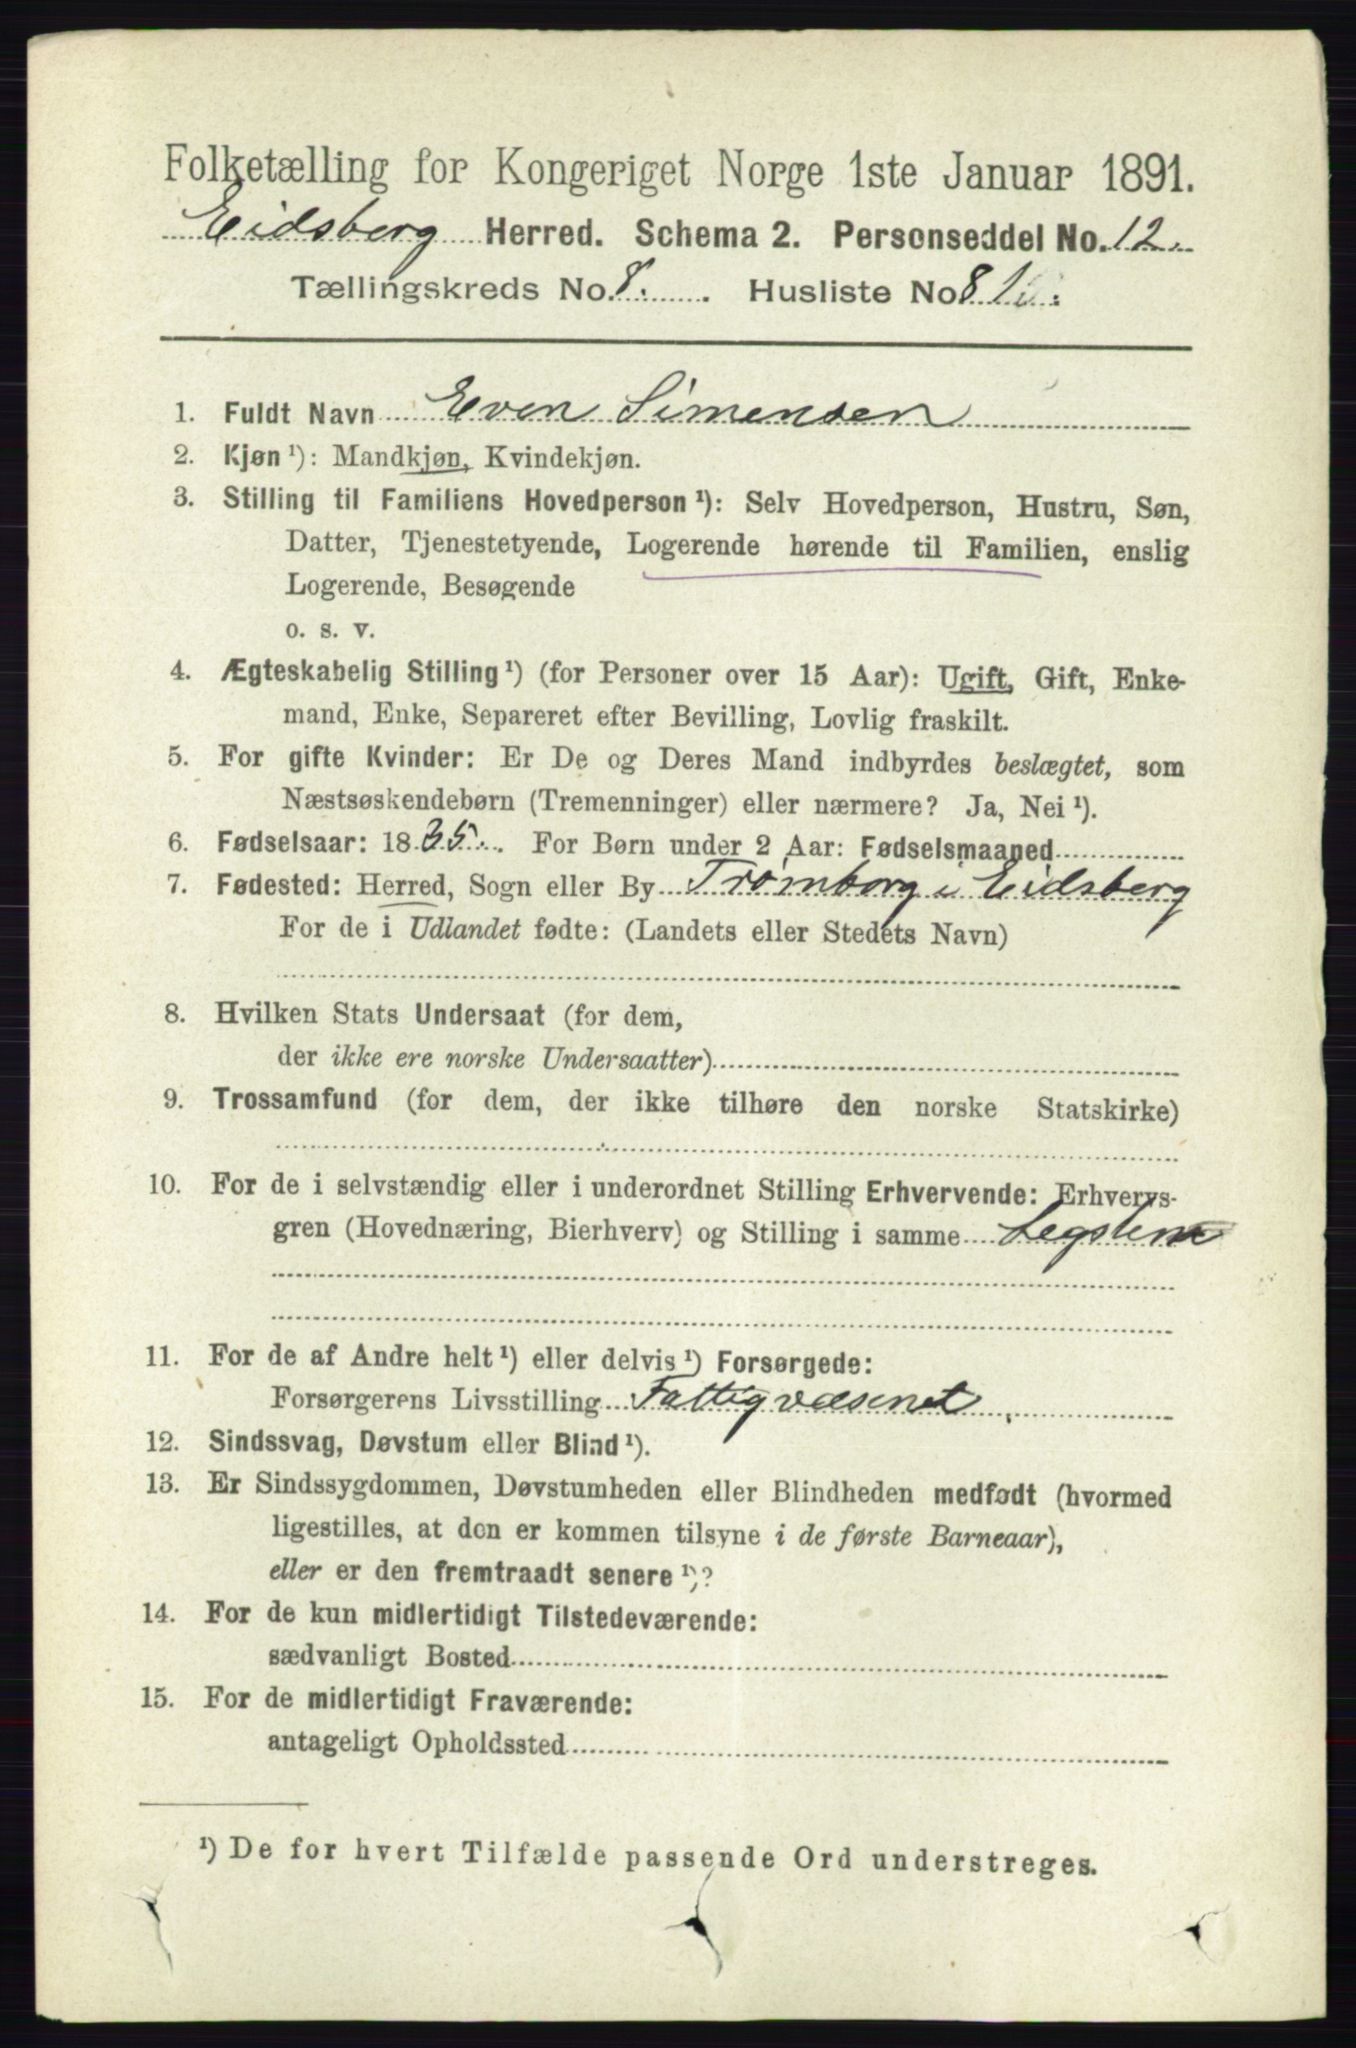 Folketælling for Kongeriget Norge 1ste Januar 1891.
Eidsberg Herred. Schema 2. Personseddel No. 12.
Tællingskreds No. 8. Husliste No 8
1. Fuldt Navn Even Simensen
2. Kjøn ¹): Mandkjøn, Kvindekjøn.
3. Stilling til Familiens Hovedperson ¹): Selv Hovedperson, Hustru, Søn,
Datter, Tjenestetyende, Logerende hørende til Familien, enslig
Logerende, Besøgende
o. s. v.
4. Ægteskabelig Stilling ¹) (for Personer over 15 Aar): Ugift, Gift, Enke-
mand, Enke, Separeret efter Bevilling, Lovlig fraskilt.
5. For gifte Kvinder: Er De og Deres Mand indbyrdes beslægtet, som
Næstsøskendebørn (Tremenninger) eller nærmere? Ja, Nei ¹).
6. Fødselsaar: 1835. For Børn under 2 Aar: Fødselsmaaned
7. Fødested: Herred, Sogn eller By Trømborg i Eidsberg
For de i Udlandet fødte: (Landets eller Stedets Navn)
8. Hvilken Stats Undersaat (for dem,
der ikke ere norske Undersaatter)
9. Trossamfund (for dem, der ikke tilhøre den norske Statskirke)
10. For de i selvstændig eller i underordnet Stilling Erhvervende: Erhvervs-
gren (Hovednæring, Bierhverv) og Stilling i samme Legslem
11. For de af Andre helt ¹) eller delvis ¹) Forsørgede:
Forsørgerens Livsstilling Fattigvæsenet
12. Sindssvag, Døvstum eller Blind ¹).
13. Er Sindssygdommen, Døvstumheden eller Blindheden medfødt (hvormed
ligestilles, at den er kommen tilsyne i de første Barneaar),
eller er den fremtraadt senere ¹)?
14. For de kun midlertidigt Tilstedeværende:
sædvanligt Bosted
15. For de midlertidigt Fraværende:
antageligt Opholdssted
¹) De for hvert Tilfælde passende Ord understreges.